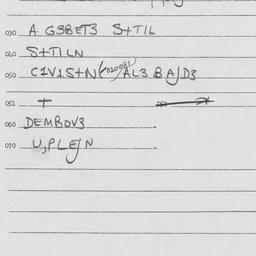 030 A G3BET3 S+TIL
040 S+TILN
050 C1V1S+N(+020091)AL3 BAJD3
051 +
060 DEMBOV3
070 U,PLEJN